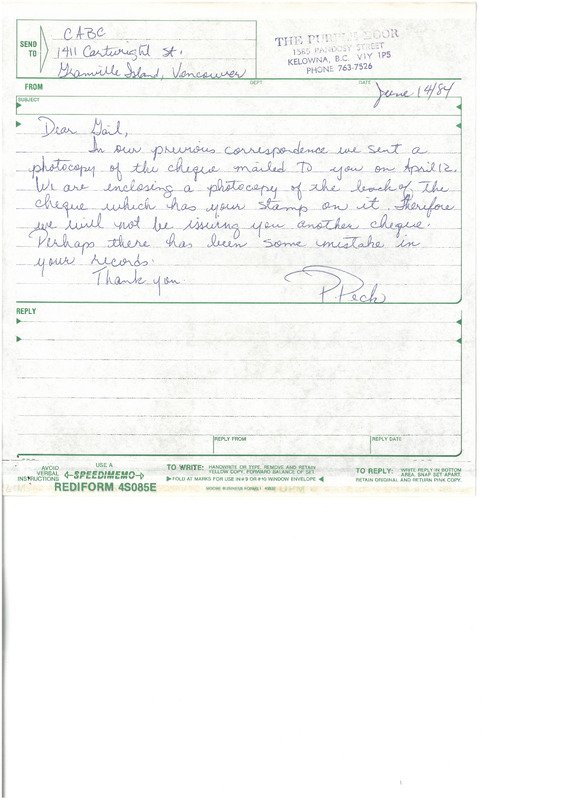 SEND TO
CABC
1411 Cartwright St.
Granville Island, Vancouver
THE PURPLE DOOR
1565 PANDOSY STREET
KELOWNA, B.C. V1Y 1P5
PHONE 763-7526
FROM
DEPT.
DATE
June 14/84
SUBJECT
Dear Gail,
In our previous correspondence we sent a
photocopy of the cheque mailed to you on April 12.
We are enclosing a photocopy of the back of the
cheque which has your stamp on it. Therefore
we will not be issuing you another cheque.
Perhaps there has been some mistake in
your records.
Thank you.
P. Peck
REPLY
REPLY FROM
REPLY DATE
AVOID VERBAL INSTRUCTIONS
USE A
SPEEDIMEMO
REDIFORM 4S085E
TO WRITE: HANDWRITE OR TYPE, REMOVE AND RETAIN
YELLOW COPY, FORWARD BALANCE OF SET.
FOLD AT MARKS FOR USE IN # 9 OR #10 WINDOW ENVELOPE
MOORE BUSINESS FORMS
TO REPLY: WRITE REPLY IN BOTTOM
AREA. SNAP SET APART,
RETAIN ORIGINAL AND RETURN PINK COPY.